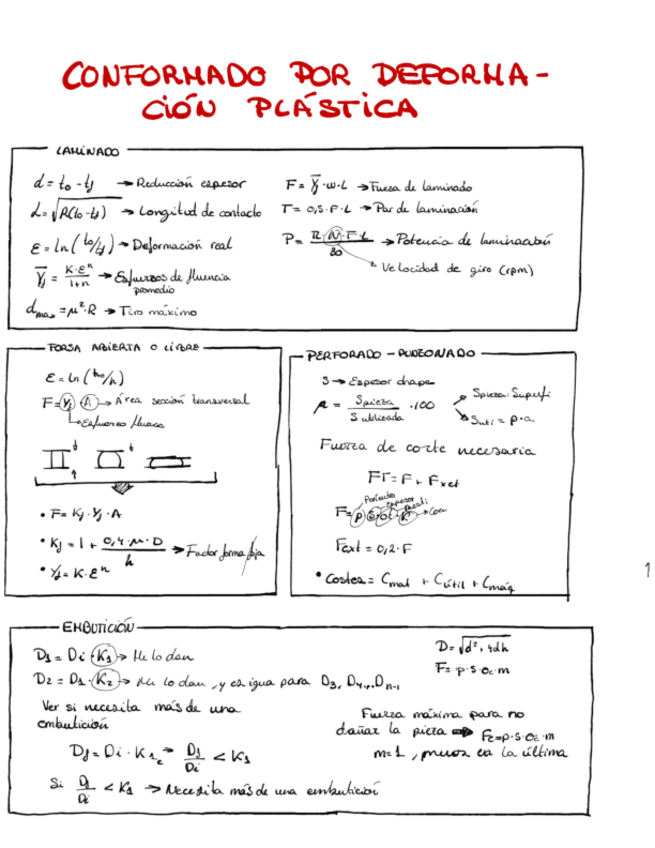 CONFORMADO POR DEFORMA-
CIÓN PLÁSTICA
LAMINADO
d = to - tf → Reducción espesor
L = √R(to - tf) → Longitud de contacto
ε = Ln (to/tf) → Deformación real
Ȳf = K·εⁿ / 1+n → Esfuerzos de fluencia
promedio
dmax = μ²·R → Tiro máximo
F = Ȳf·w·L → Fuerza de laminado
T = 0,5·F·L → Par de laminación
P = π·N·F·L / 30 → Potencia de laminación
Velocidad de giro (rpm)
FORJA ABIERTA O LIBRE
ε = Ln (ho/h)
F = Yf · A → Área sección transversal
→ Esfuerzo fluencia
• F = Kf · Yf · A
• Kf = 1 + 0,4·μ·D / h → Factor forma forja
• Yf = K·εⁿ
PERFORADO - PUNZONADO
S → Espesor chapa
μ = Spieza / S utilizada · 100
Spieza: Superfi
Suti = p·a
Fuerza de corte necesaria
FT = F + Fext
Perímetro
espesor
F = p·s·σc·K
Fext = 0,2·F
• Costes = Cmat + Cútil + Cmáq
1
EMBUTICIÓN
D1 = Di · K1 → Me lo dan
D2 = D1 · K2 → Me lo dan, y es igua para D3, D4,...Dn-1
Ver si necesita más de una
embutición
Df = Di · K1 → Df/Di < K1
Si Df/Di < K1 → Necesita más de una embutición
D = √d² + 4dh
F = p·s·σc·m
Fuerza máxima para no
dañar la pieza → Fc = p·s·σc·m
m = 1, pues es la última